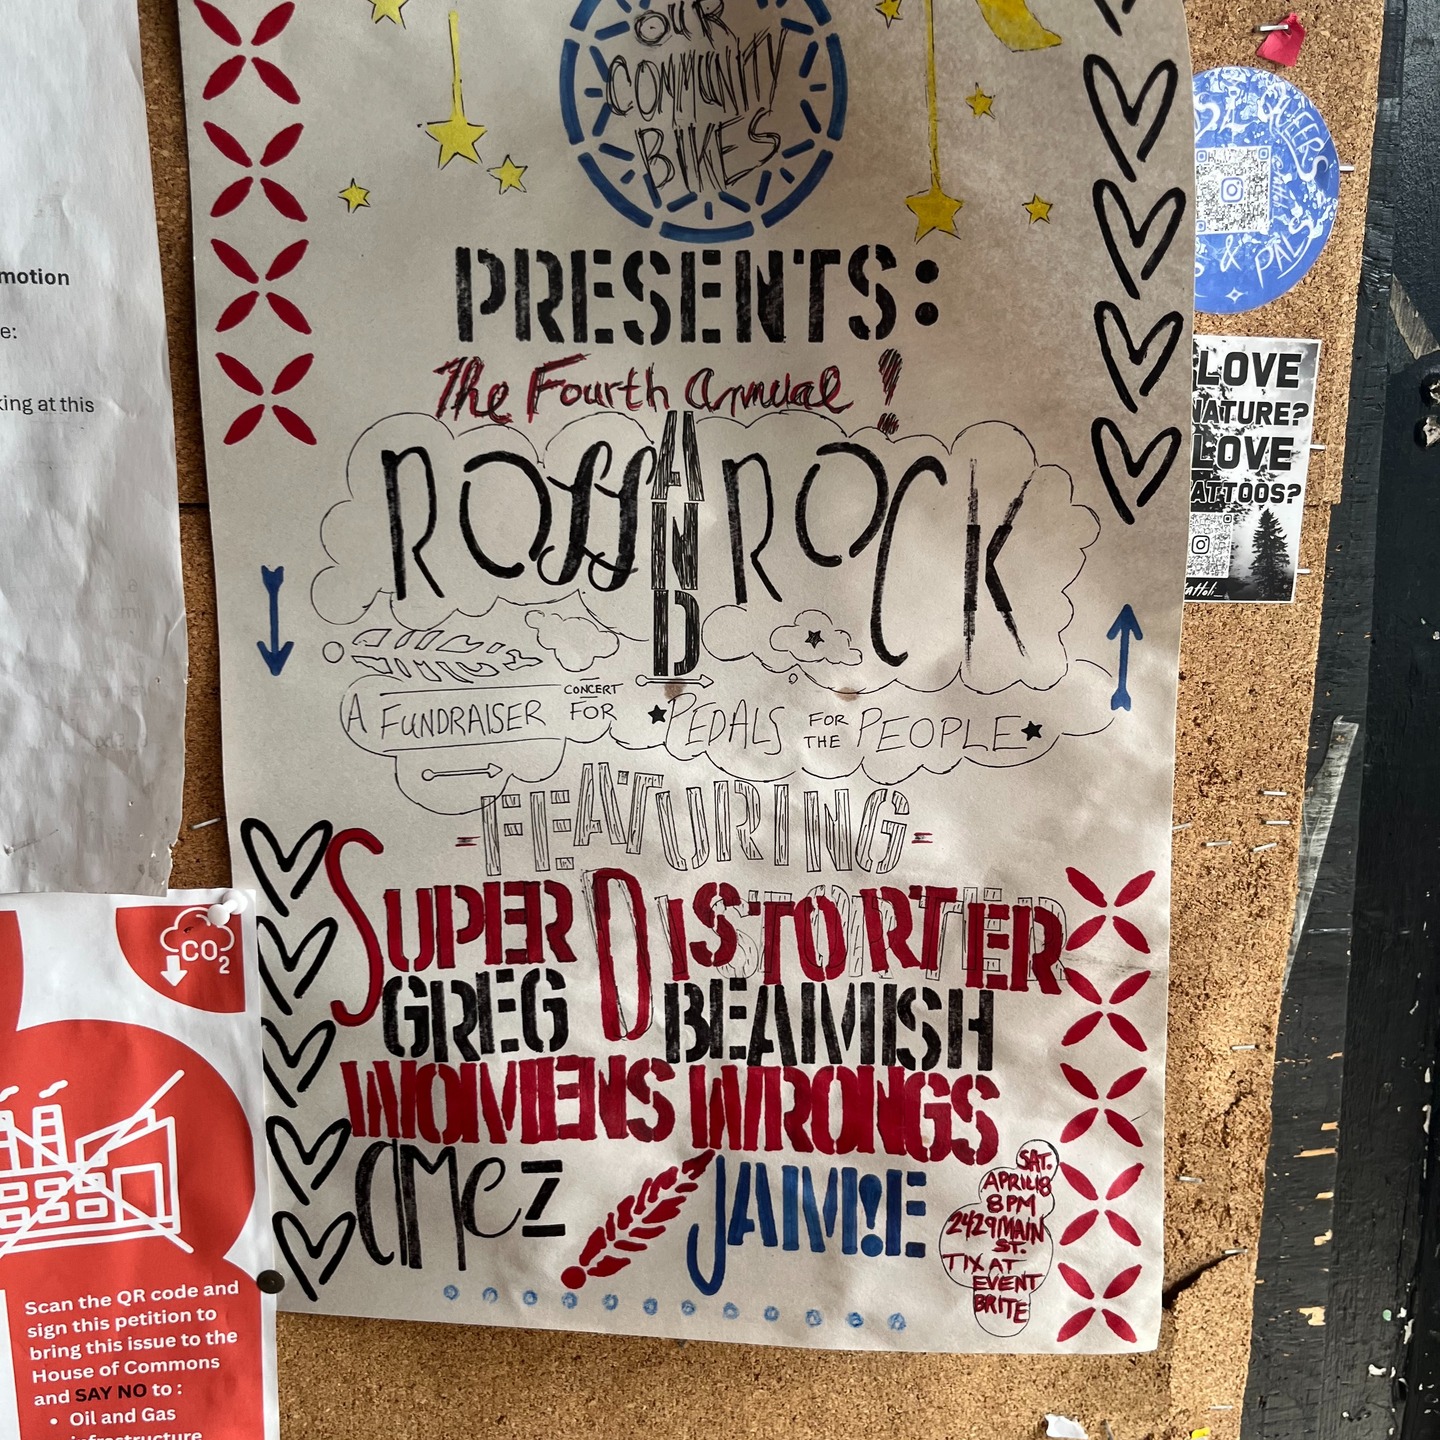 OUR
COMMUNITY
BIKES
PRESENTS:
The Fourth Annual!
ROSS AND ROCK
A FUNDRAISER CONCERT FOR PEDALS FOR THE PEOPLE
FEATURING
SUPER DISTORTER
GREG BEAMISH
WOMENS WRONGS
AMCZ JAM!E
SAT.
APRIL 18
8 PM
2429 MAIN
ST.
TIX AT
EVENT
BRITE
motion
e:
king at this
CO2
Scan the QR code and
sign this petition to
bring this issue to the
House of Commons
and SAY NO to :
• Oil and Gas
infrastructure
QUEERS
& PALS
LOVE
NATURE?
LOVE
TATTOOS?